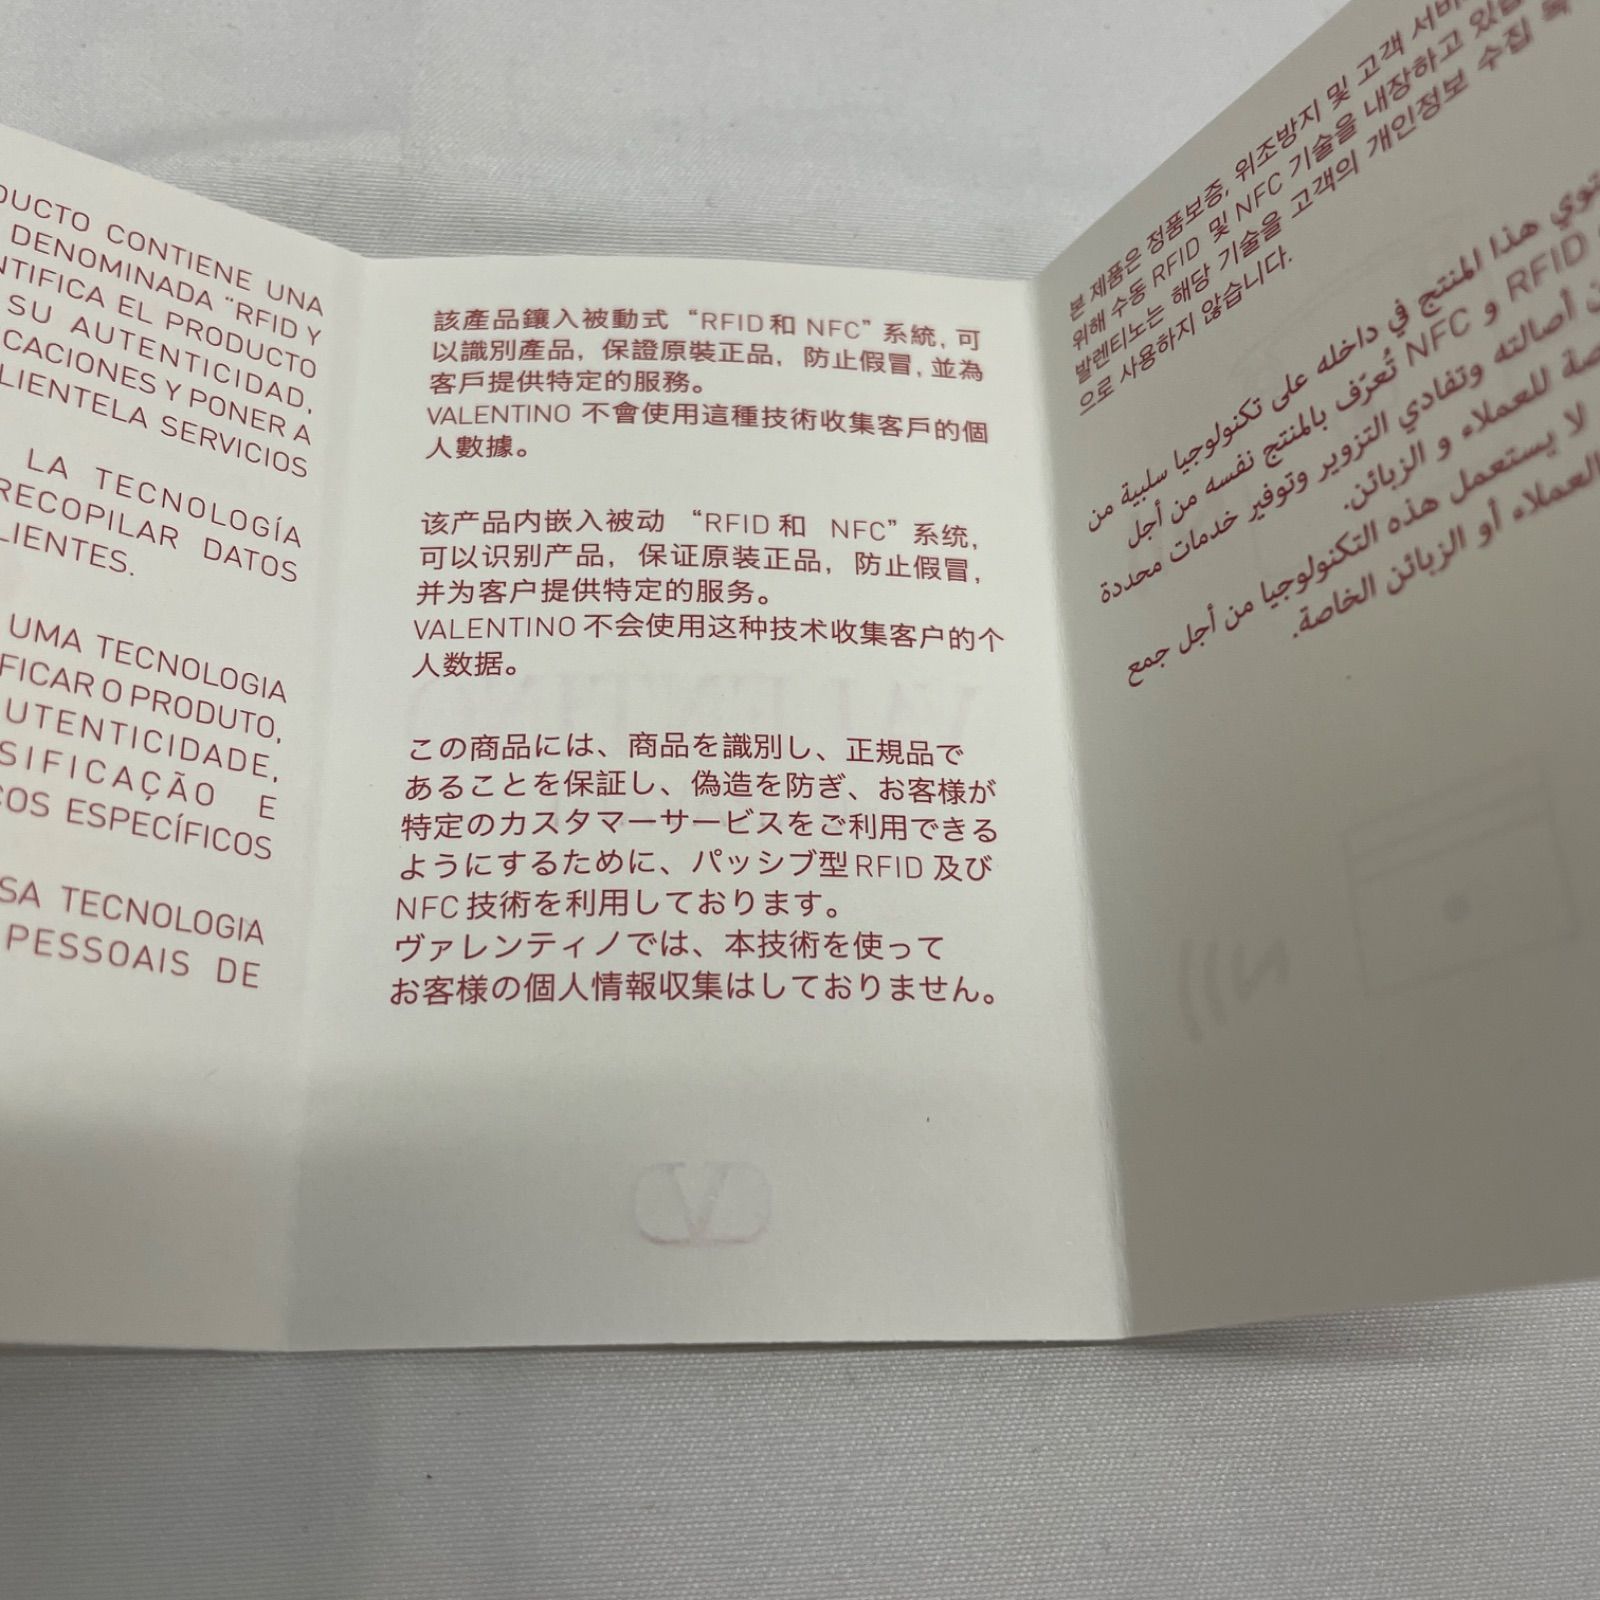 DUCTO CONTIENE UNA
DENOMINADA "RFID Y
NTIFICA EL PRODUCTO
SU AUTENTICIDAD,
CACIONES Y PONER A
LIENTELA SERVICIOS
LA TECNOLOGÍA
RECOPILAR DATOS
LIENTES.
UMA TECNOLOGIA
FICAR O PRODUTO,
UTENTICIDADE,
SIFICAÇÃO E
ÇOS ESPECÍFICOS
SA TECNOLOGIA
PESSOAIS DE
該產品鑲入被動式 “RFID和 NFC” 系統, 可
以識別產品, 保證原裝正品, 防止假冒, 並為
客戶提供特定的服務。
VALENTINO 不會使用這種技術收集客戶的個
人數據。
该产品内嵌入被动 “RFID 和 NFC” 系统,
可以识别产品, 保证原装正品, 防止假冒,
并为客户提供特定的服务。
VALENTINO 不会使用这种技术收集客户的个
人数据。
この商品には、商品を識別し、正規品で
あることを保証し、偽造を防ぎ、お客様が
特定のカスタマーサービスをご利用できる
ようにするために、パッシブ型RFID 及び
NFC 技術を利用しております。
ヴァレンティノでは、本技術を使って
お客様の個人情報収集はしておりません。
본 제품은 정품보증, 위조방지 및 고객 서비
위해 수동 RFID 및 NFC 기술을 내장하고 있습
발렌티노는 해당 기술을 고객의 개인정보 수집 목
으로 사용하지 않습니다.
توي هذا المنتج في داخله على تكنولوجيا سلبية من
RFID و NFC تُعرّف بالمنتج نفسه من أجل
ن أصالته وتفادي التزوير وتوفير خدمات محددة
صة للعملاء و الزبائن.
لا يستعمل هذه التكنولوجيا من أجل جمع
العملاء أو الزبائن الخاصة.